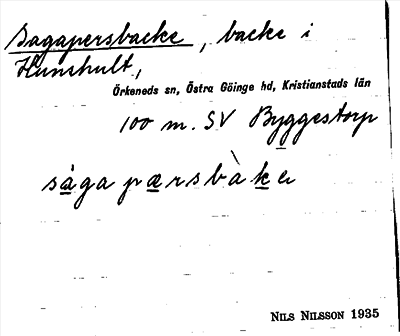 Sagapersbacke, backe i
Hunshult,
Örkeneds sn, Östra Göinge hd, Kristianstads län
100 m. SV Byggestorp
såga pærsbàkɐ
NILS NILSSON 1935